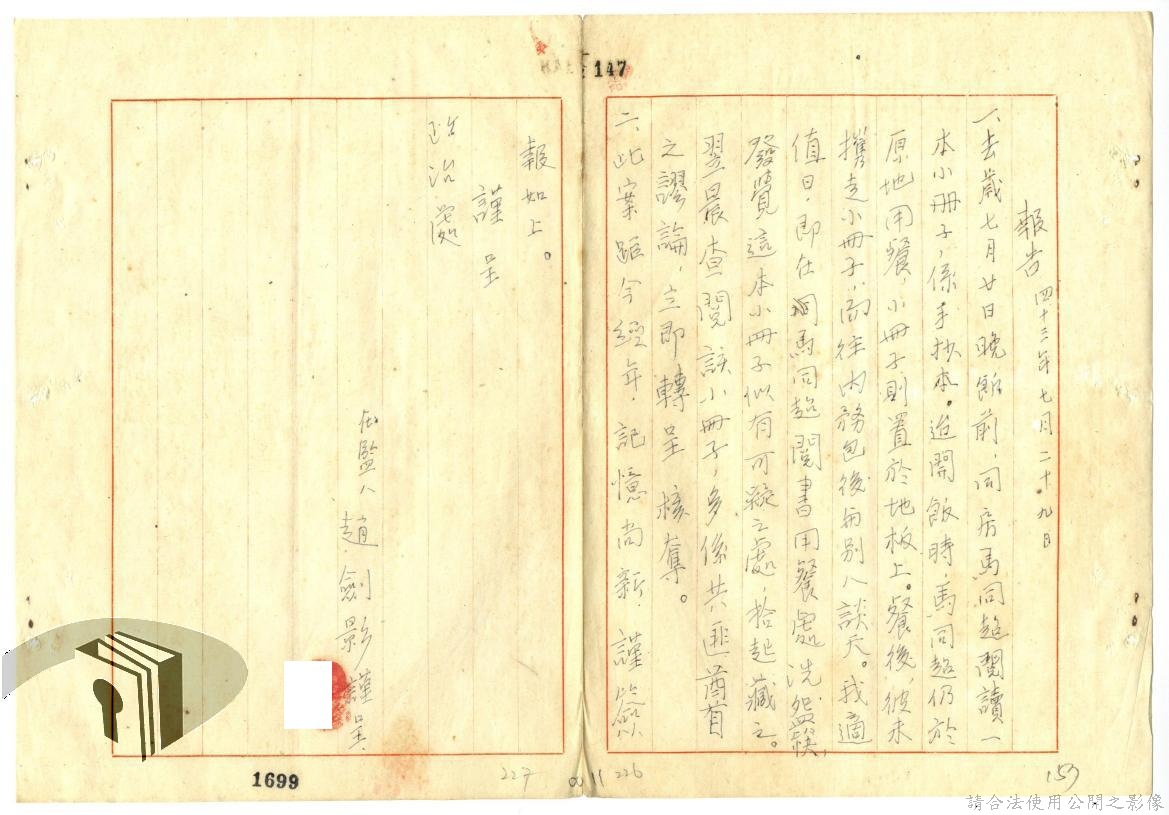 147
報告 四十三年七月二十九日
一、去歲七月廿日晚飯前，同房馬同超閱讀一
本小冊子，係手抄本。迨開飯時，馬同超仍於
原地用餐，小冊子則置於地板上。餐後，彼未
攜走小冊子，而往內務包後面與別人談天。我適
值日，即在馬同超閱書用餐處洗碗筷，
發覺這本小冊子似有可疑之處，拾起藏之。
翌晨查閱該小冊子，多係共匪酋首
之謬論，立即轉呈核奪。
二、此案距今經年，記憶尚新，謹簽
報如上。
謹呈
政治處
在監人 趙劍影 謹呈
1699
227
226
153
請合法使用公開之影像